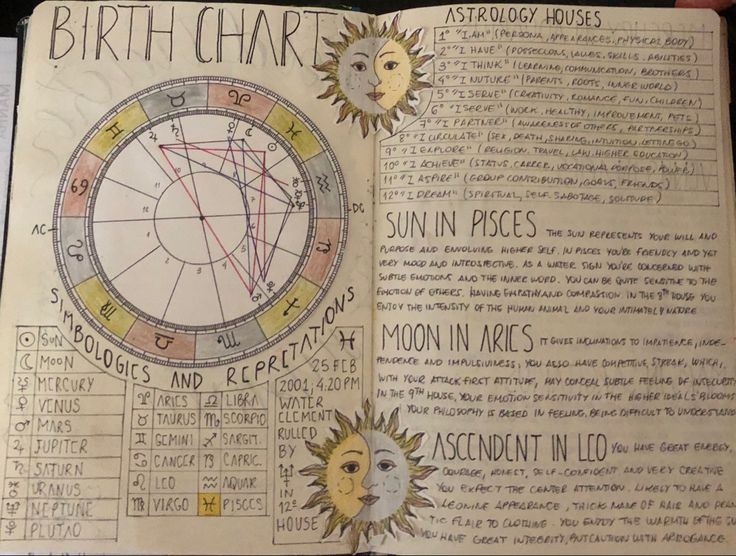 BIRTH CHART
AC
DC
1 2 3 4 5 6 7 8 9 10 11 12
SIMBOLOGIES AND REPRETATIONS
☉ SUN
☾ MOON
☿ MERCURY
♀ VENUS
♂ MARS
♃ JUPITER
♄ SATURN
URANUS
♆ NEPTUNE
PLUTÃO
♈ ARIES ♎ LIBRA
♉ TAURUS ♏ SCORPIO
♊ GEMINI ♐ SAGIT.
♋ CANCER ♑ CAPRIC.
♌ LEO ♒ AQUAR
♍ VIRGO ♓ PISCES
♓
25 FEB
2001, 4:20 PM
WATER
ELEMENT
RULLED
BY
♆
IN
12º
HOUSE
ASTROLOGY HOUSES
1º "I AM" (PERSONA, APPEARENCES, PHYSICAL BODY)
2º "I HAVE" (POSSECIONS, VALUES, SKILLS, ABILITIES)
3º "I THINK" (LEARNING, COMMUNICATION, BROTHERS)
4º "I NUTURE" (PARENTS, ROOTS, INNER WORLD)
5º "I SERVE" (CREATIVITY, ROMANCE, FUN, CHILDREN)
6º "I SERVE" (WORK, HEALTHY, IMPROVEMENT, PETS)
7º "I PARTNER" (AWARENESS OF OTHERS, PARTNERSHIPS)
8º "I CIRCULATE" (SEX, DEATH, SHARING, INTUITION, LETTING GO)
9º "I EXPLORE" (RELIGION, TRAVEL, LAW, HIGHER EDUCATION)
10º "I ACHIEVE" (STATUS, CAREER, VOCATIONAL PORPOSE, POWER)
11º "I ASPIRE" (GROUP CONTRIBUTION, GOALS, FRIENDS)
12º "I DREAM" (SPIRITUAL, SELF-SABOTAGE, SOLITUDE)
SUN IN PISCES THE SUN REPRESENTS YOUR WILL AND
PURPOSE AND ENVOLVING HIGHER SELF. IN PISCES YOU'RE FRIENDLY AND YET
VERY MOOD AND INTROSPECTIVE. AS A WATER SIGN YOU'RE CONCERNED WITH
SUBTLE EMOTIONS AND THE INNER WORD. YOU CAN BE QUITE SENSITIVE TO THE
EMOTION OF OTHERS. HAVING EMPATHY AND COMPASTION. IN THE 8TH HOUSE YOU
ENJOY THE INTENSITY OF THE HUMAN ANIMAL AND YOUR INTIMATELY NATURE
MOON IN ARIES IT GIVES INCLINATIONS TO IMPATIENCE, INDE-
PENDENCE AND IMPULSIVINESS, YOU ALSO HAVE COMPETITIVE STREAK, WHICH,
WITH YOUR ATTACK FIRST ATTITUDE, MAY CONCEAL SUBTLE FEELING OF INSECURITY
IN THE 9TH HOUSE, YOUR EMOTION SENSITIVITY IN THE HIGHER IDEALS BLOOMS
YOUR PHILOSOPHY IS BASED IN FEELING, BEING DIFFICULT TO UNDERSTAND
ASCENDENT IN LEO YOU HAVE GREAT ENERGY,
COURAGE, HONEST, SELF-CONFIDENT AND VERY CREATIVE
YOU EXPECT THE CENTER ATTENTION. LIKELY TO HAVE A
LEONINE APPEARANCE, THICK MANE OF HAIR AND DRAMA
TIC FLAIR TO CLOTHING. YOU ENJOY THE WARMTH OF THE SUN
YOU HAVE GREAT INTEGRITY, BUT CAUTION WITH ARROGANCE